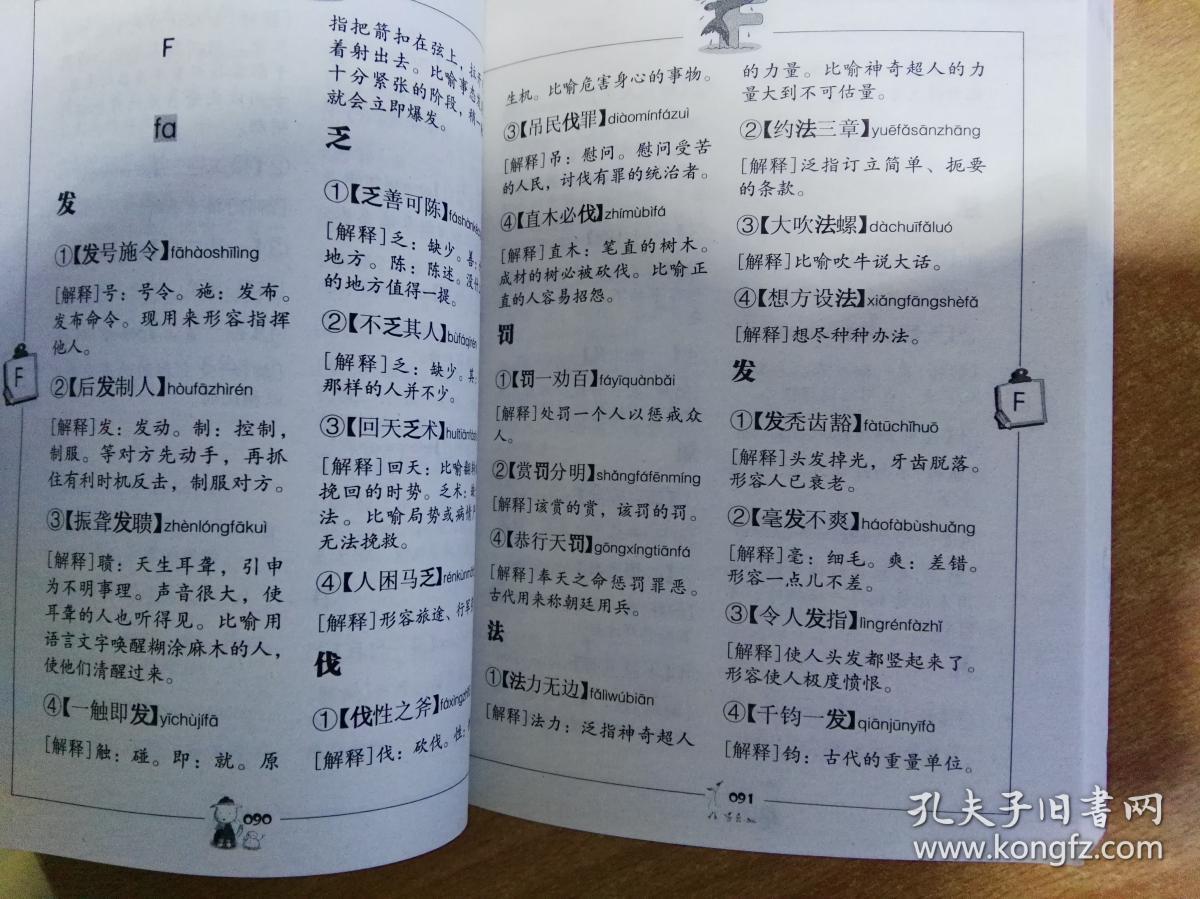 F
fa
发
①【发号施令】fāhàoshīlìng
[解释]号：号令。施：发布。
发布命令。现用来形容指挥
他人。
②【后发制人】hòufāzhìrén
[解释]发：发动。制：控制，
制服。等对方先动手，再抓
住有利时机反击，制服对方。
③【振聋发聩】zhènlóngfākuì
[解释]聩：天生耳聋，引申
为不明事理。声音很大，使
耳聋的人也听得见。比喻用
语言文字唤醒糊涂麻木的人，
使他们清醒过来。
④【一触即发】yīchùjífā
[解释]触：碰。即：就。原
指把箭扣在弦上，拉
着射出去。比喻事态
十分紧张的阶段，稍一
就会立即爆发。
乏
①【乏善可陈】fáshànkě
[解释]乏：缺少。善：
地方。陈：陈述。没什
的地方值得一提。
②【不乏其人】bùfáqírén
[解释]乏：缺少。其：
那样的人并不少。
③【回天乏术】huítiānfá
[解释]回天：比喻
挽回的时势。乏术：
法。比喻局势或病情
无法挽救。
④【人困马乏】rénkùnmǎ
[解释]形容旅途、行军
伐
①【伐性之斧】fáxìngzhī
[解释]伐：砍伐。性：
F
090
生机。比喻危害身心的事物。
③【吊民伐罪】diàomínfázuì
[解释]吊：慰问。慰问受苦
的人民，讨伐有罪的统治者。
④【直木必伐】zhímùbìfá
[解释]直木：笔直的树木。
成材的树必被砍伐。比喻正
直的人容易招怨。
罚
①【罚一劝百】fáyīquànbǎi
[解释]处罚一个人以惩戒众
人。
②【赏罚分明】shǎngfáfēnmíng
[解释]该赏的赏，该罚的罚。
④【恭行天罚】gōngxíngtiānfá
[解释]奉天之命惩罚罪恶。
古代用来称朝廷用兵。
法
①【法力无边】fǎlìwúbiān
[解释]法力：泛指神奇超人
的力量。比喻神奇超人的力
量大到不可估量。
②【约法三章】yuēfǎsānzhāng
[解释]泛指订立简单、扼要
的条款。
③【大吹法螺】dàchuīfǎluó
[解释]比喻吹牛说大话。
④【想方设法】xiǎngfāngshèfǎ
[解释]想尽种种办法。
发
①【发秃齿豁】fàtūchǐhuō
[解释]头发掉光，牙齿脱落。
形容人已衰老。
②【毫发不爽】háofàbùshuǎng
[解释]毫：细毛。爽：差错。
形容一点儿不差。
③【令人发指】lìngrénfàzhǐ
[解释]使人头发都竖起来了。
形容使人极度愤恨。
④【千钧一发】qiānjūnyīfà
[解释]钧：古代的重量单位。
F
091
孔夫子旧书网
www.kongfz.com